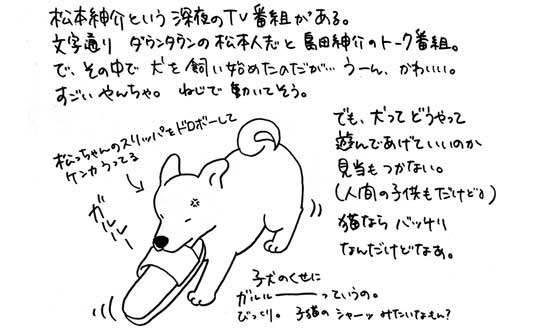 松本紳介という深夜のTV番組がある。
文字通り ダウンタウンの松本人志と島田紳介のトーク番組。
で、その中で犬を飼い始めたのだが…うーん、かわいい。
すごいやんちゃ。 ねじで動いてそう。
でも、犬ってどうやって
遊んであげていいのか
見当もつかない。
(人間の子供もだけどさ)
猫なら バッチリ
なんだけどなぁ。
松っちゃんのスリッパをドロボーして
ケンカうってる
ガルルー
子犬のくせに
ガルルーっていうの。
びっくり。 子猫の シャーッ みたいなもん?